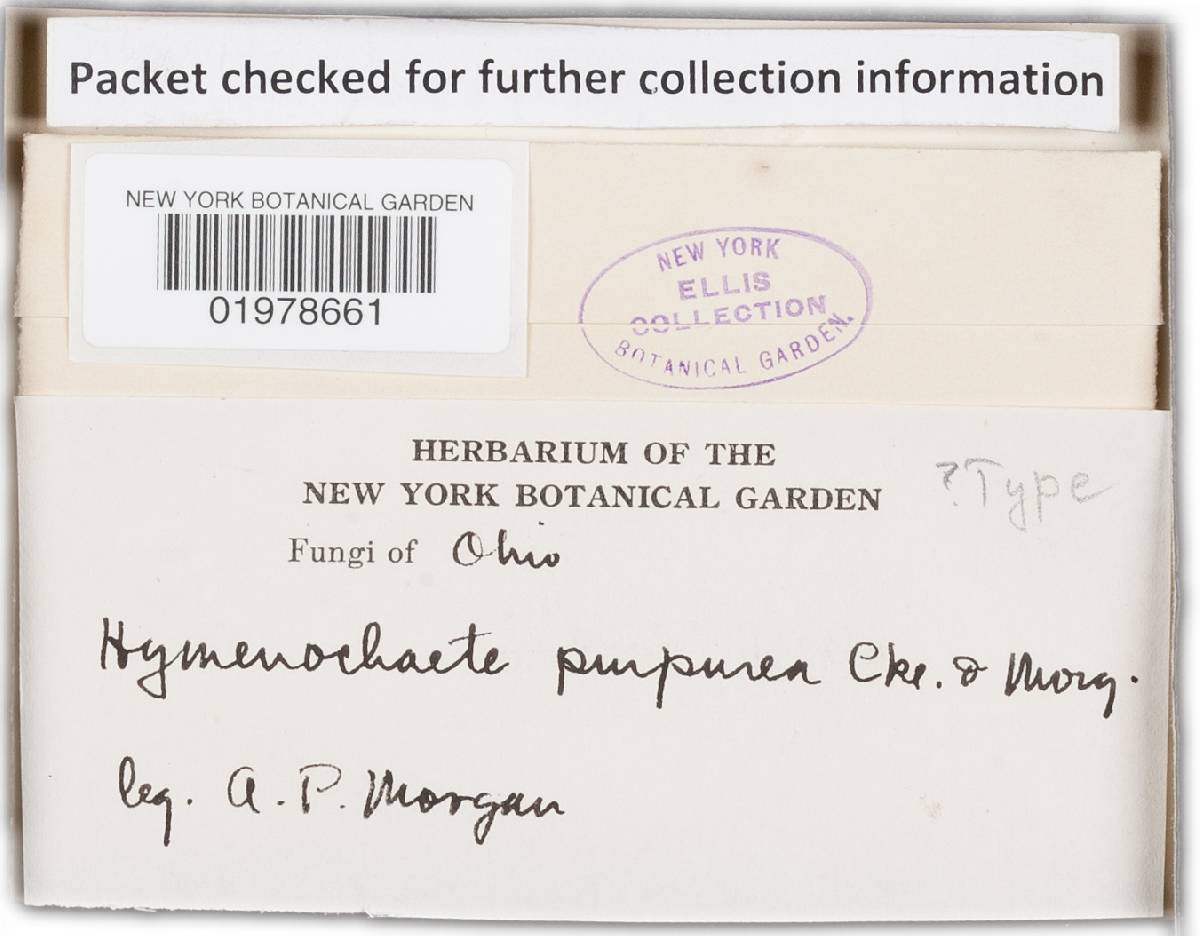 Packet checked for further collection information
NEW YORK BOTANICAL GARDEN
01978661
NEW YORK
ELLIS
COLLECTION
BOTANICAL GARDEN.
HERBARIUM OF THE
NEW YORK BOTANICAL GARDEN
?Type
Fungi of Ohio
Hymenochaete purpurea Cke. & Morg.
leg. A. P. Morgan